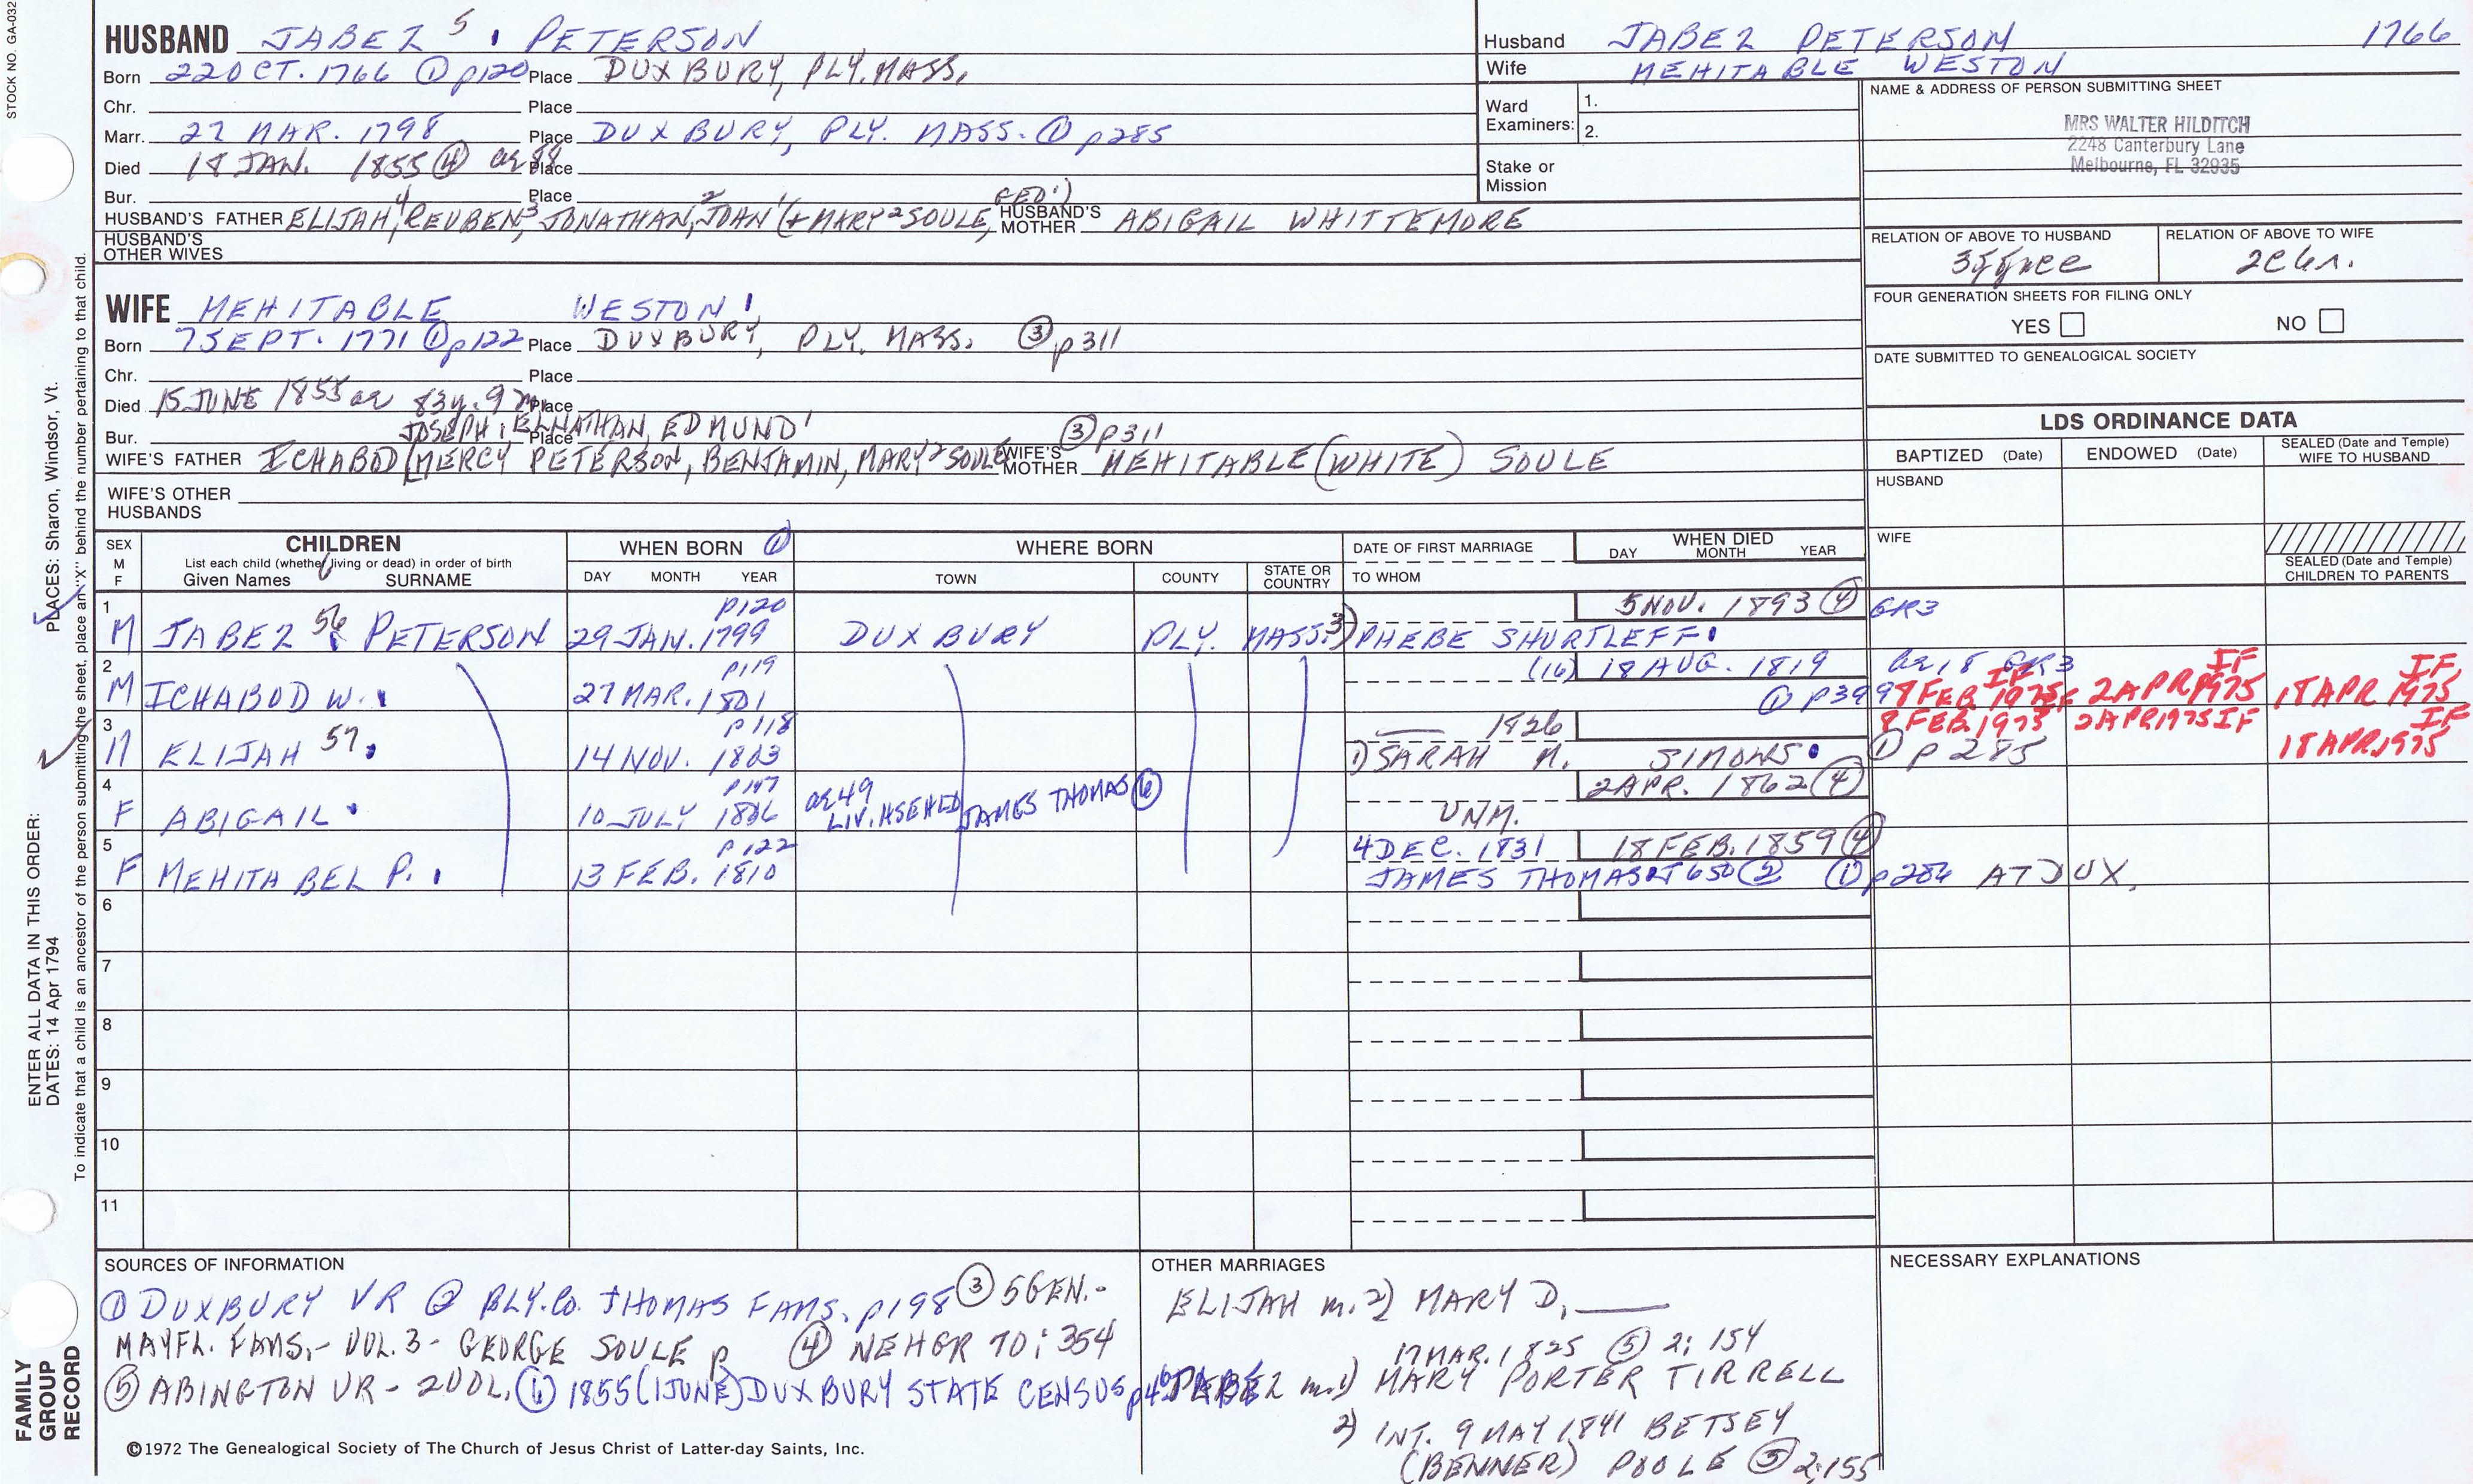 STOCK NO. GA-032
HUSBAND JABEZ 5 PETERSON
Born 22 OCT. 1766 ① p120 Place DUXBURY, PLY. MASS.
Chr. Place
Marr. 27 MAR. 1798 Place DUXBURY, PLY. MASS. ① p285
Died 18 JAN. 1855 ④ ae 88 Place
Bur. Place
HUSBAND'S FATHER ELIJAH 4, REUBEN 3, JONATHAN 2, JOHN 1 (+ MARY 2 SOULE, GEO 1) HUSBAND'S MOTHER ABIGAIL WHITTEMORE
HUSBAND'S OTHER WIVES
Husband JABEZ PETERSON 1766
Wife MEHITABLE WESTON
Ward Examiners: 1.
2.
Stake or Mission
NAME & ADDRESS OF PERSON SUBMITTING SHEET
MRS WALTER HILDITCH
2248 Canterbury Lane
Melbourne, FL 32935
RELATION OF ABOVE TO HUSBAND
RELATION OF ABOVE TO WIFE
FOUR GENERATION SHEETS FOR FILING ONLY
YES NO
DATE SUBMITTED TO GENEALOGICAL SOCIETY
WIFE MEHITABLE WESTON
Born 7 SEPT. 1771 ① p122 Place DUXBURY, PLY. MASS. ③ p311
Chr. Place
Died 15 JUNE 1855 ae 83y. 9m Place
JOSEPH, ELNATHAN, EDMUND 1 ③ p311
Bur. Place
WIFE'S FATHER ICHABOD (MERCY PETERSON, BENJAMIN, MARY 2 SOULE WIFE'S MOTHER MEHITABLE (WHITE) SOULE
WIFE'S OTHER HUSBANDS
LDS ORDINANCE DATA
BAPTIZED (Date) ENDOWED (Date) SEALED (Date and Temple) WIFE TO HUSBAND
HUSBAND
WIFE
SEALED (Date and Temple) CHILDREN TO PARENTS
SEX M F
CHILDREN
List each child (whether living or dead) in order of birth
Given Names SURNAME
WHEN BORN ①
DAY MONTH YEAR
WHERE BORN
TOWN COUNTY STATE OR COUNTRY
DATE OF FIRST MARRIAGE
TO WHOM
WHEN DIED
DAY MONTH YEAR
1 p120 5 NOV. 1893 ④ GR3
M JABEZ 56 PETERSON 29 JAN. 1799 DUXBURY PLY. MASS. 3) PHEBE SHURTLEFF
2 p119 (16) 18 AUG. 1819 ae 18 GR3 IF IF IF
M ICHABOD W. 27 MAR. 1801 ① p399 8 FEB 1975 2 APR 1975 18 APR 1975
3 p118 1826 8 FEB. 1975 2 APR 1975 IF IF
M ELIJAH 57 14 NOV. 1803 1) SARAH N. SIMONS ① p285 18 APR. 1975
4 p117 ae 49 2 APR. 1862 ④
F ABIGAIL 10 JULY 1806 LIV. HSEHLD JAMES THOMAS ⑥ UNM.
5 p122 4 DEC. 1831 18 FEB. 1859 ④
F MEHITABEL P. 13 FEB. 1810 JAMES THOMAS ② ① p286 AT DUX.
6
7
8
9
10
11
SOURCES OF INFORMATION
① DUXBURY VR ② PLY. Co. THOMAS FAMS. p198 ③ 5 GEN.-
MAYFL. FAMS.- VOL. 3 - GEORGE SOULE p ④ NEHGR 70: 354
⑤ ABINGTON VR - 2 VOL. ⑥ 1855 (1 JUNE) DUXBURY STATE CENSUS
©1972 The Genealogical Society of The Church of Jesus Christ of Latter-day Saints, Inc.
OTHER MARRIAGES
ELIJAH m. 2) MARY D.
17 MAR. 1825 ⑤ 2: 154
JABEZ m. 1) MARY PORTER TIRRELL
2) INT. 9 MAY 1841 BETSEY
(BENNER) POOLE ⑤ 2:155
NECESSARY EXPLANATIONS
PLACES: Sharon, Windsor, Vt.
ENTER ALL DATA IN THIS ORDER:
DATES: 14 Apr 1794
To indicate that a child is an ancestor of the person submitting the sheet, place an "X" behind the number pertaining to that child.
FAMILY GROUP RECORD